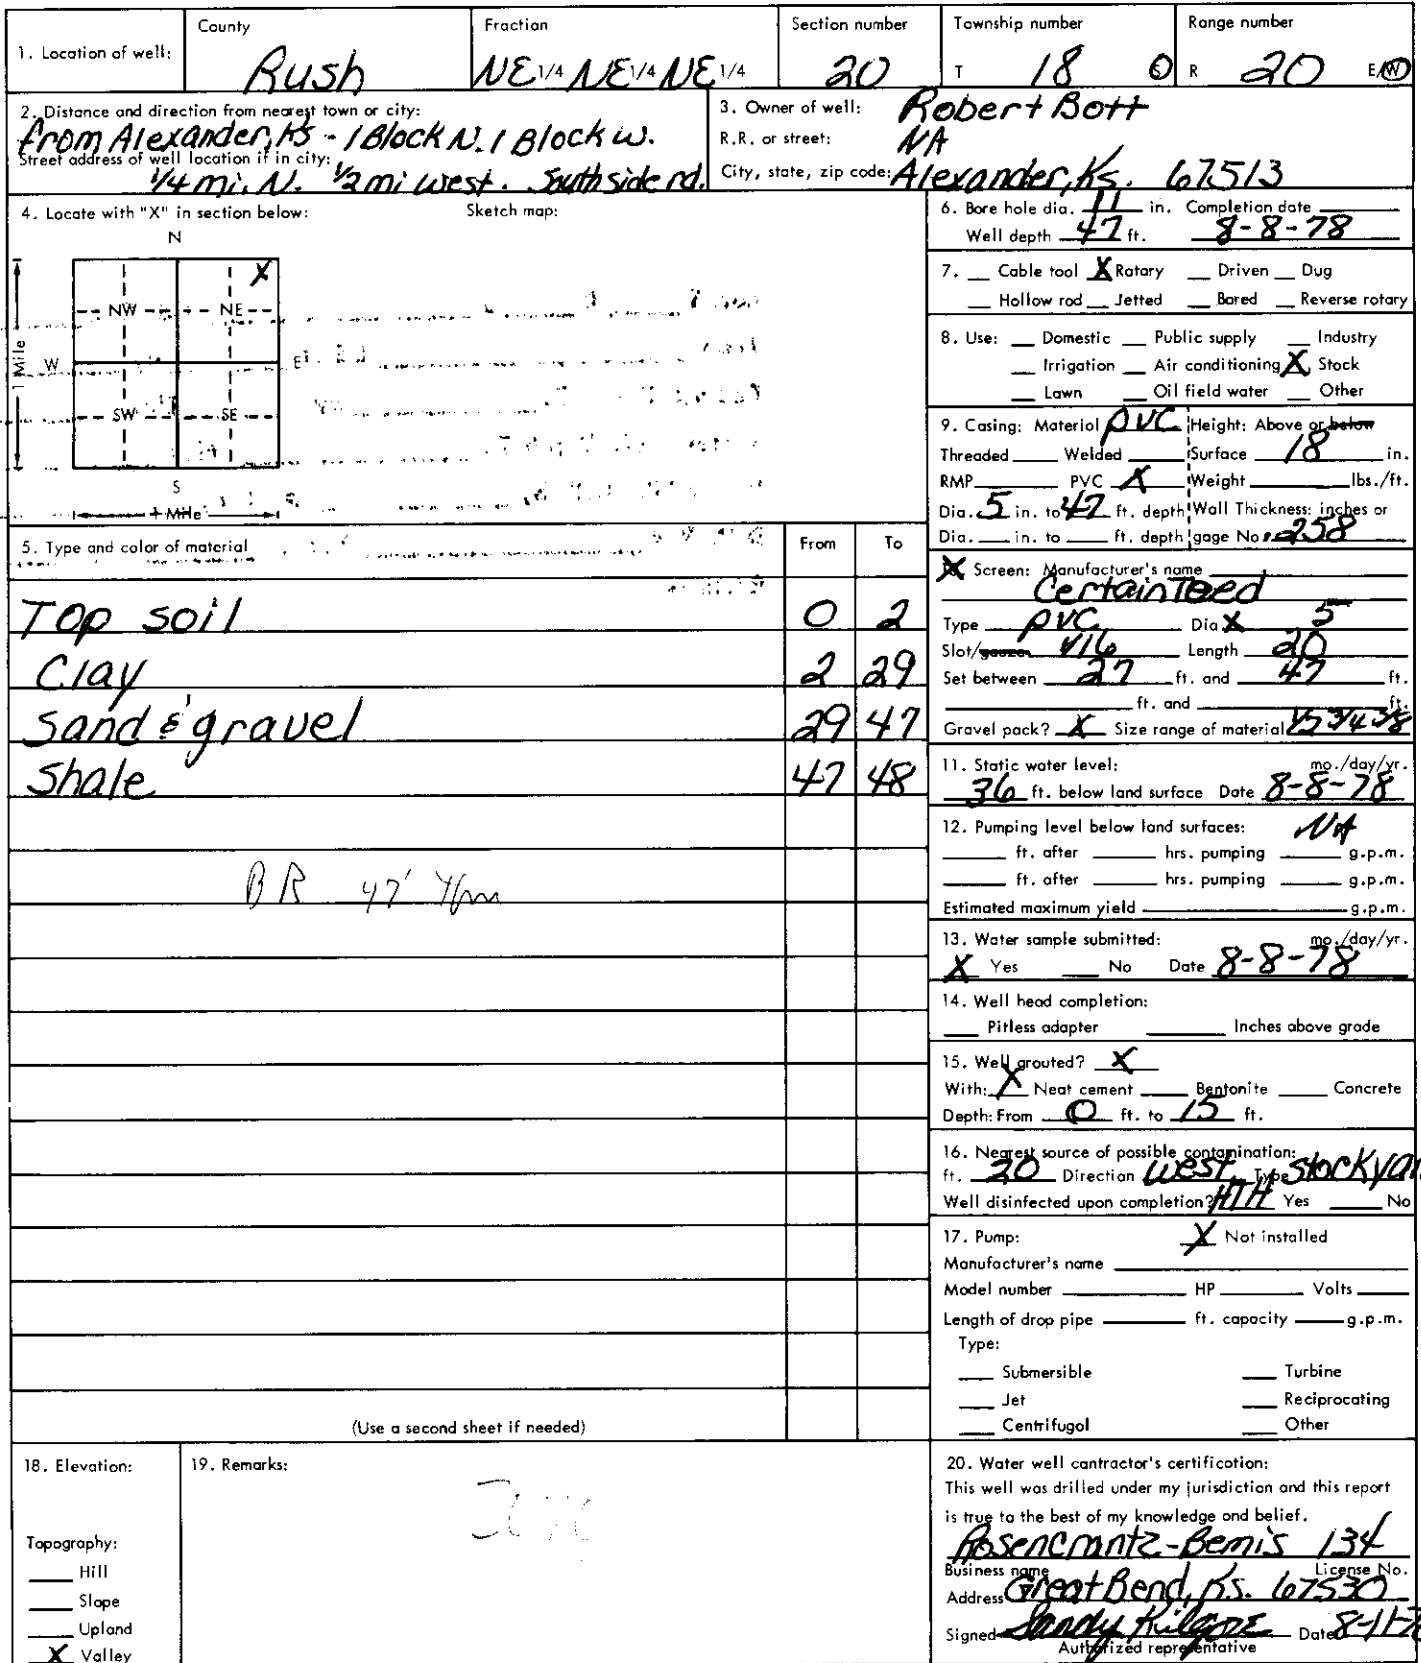 1. Location of well: County Rush Fraction NE 1/4 NE 1/4 NE 1/4 Section number 20 Township number T 18 S Range number R 20 E/W
2. Distance and direction from nearest town or city:
from Alexander, Ks - 1 Block N. 1 Block W.
Street address of well location if in city:
1/4 mi. N. 1/2 mi west. South side rd.
3. Owner of well: Robert Bott
R.R. or street: NA
City, state, zip code: Alexander, Ks. 67513
4. Locate with "X" in section below: Sketch map:
N
X
NW NE
1 Mile
W E
SW SE
S
1 Mile
5. Type and color of material From To
Top soil 0 2
Clay 2 29
Sand & gravel 29 47
Shale 47 48
BR 47'
(Use a second sheet if needed)
6. Bore hole dia. 11 in. Completion date
Well depth 47 ft. 8-8-78
7. __ Cable tool X Rotary __ Driven __ Dug
__ Hollow rod __ Jetted __ Bored __ Reverse rotary
8. Use: __ Domestic __ Public supply __ Industry
__ Irrigation __ Air conditioning X Stock
__ Lawn __ Oil field water __ Other
9. Casing: Material PVC Height: Above or below
Threaded ____ Welded ____ Surface 18 in.
RMP ____ PVC X Weight ____ lbs./ft.
Dia. 5 in. to 47 ft. depth Wall Thickness: inches or
Dia. ___ in. to ___ ft. depth gage No. .258
Screen: Manufacturer's name
CertainTeed
Type PVC Dia 5
Slot/gauze 1/16 Length 20
Set between 27 ft. and 47 ft.
____ ft. and ____ ft.
Gravel pack? X Size range of material 1/2 3/4 3/8
11. Static water level: mo./day/yr.
36 ft. below land surface Date 8-8-78
12. Pumping level below land surfaces: NA
____ ft. after ____ hrs. pumping ____ g.p.m.
____ ft. after ____ hrs. pumping ____ g.p.m.
Estimated maximum yield ____ g.p.m.
13. Water sample submitted: mo./day/yr.
X Yes ___ No Date 8-8-78
14. Well head completion:
___ Pitless adapter ____ Inches above grade
15. Well grouted? X
With: X Neat cement ___ Bentonite ___ Concrete
Depth: From 0 ft. to 15 ft.
16. Nearest source of possible contamination:
ft. 20 Direction west Type stockyar
Well disinfected upon completion? HTH Yes ___ No
17. Pump: X Not installed
Manufacturer's name
Model number ____ HP ____ Volts ____
Length of drop pipe ____ ft. capacity ____ g.p.m.
Type:
___ Submersible ___ Turbine
___ Jet ___ Reciprocating
___ Centrifugal ___ Other
18. Elevation:
Topography:
___ Hill
___ Slope
___ Upland
X Valley
19. Remarks:
20. Water well contractor's certification:
This well was drilled under my jurisdiction and this report
is true to the best of my knowledge and belief.
Rosencrantz-Bemis 134
Business name License No.
Address Great Bend, Ks. 67530
Signed Sandy Kilgore Date 8-11-78
Authorized representative